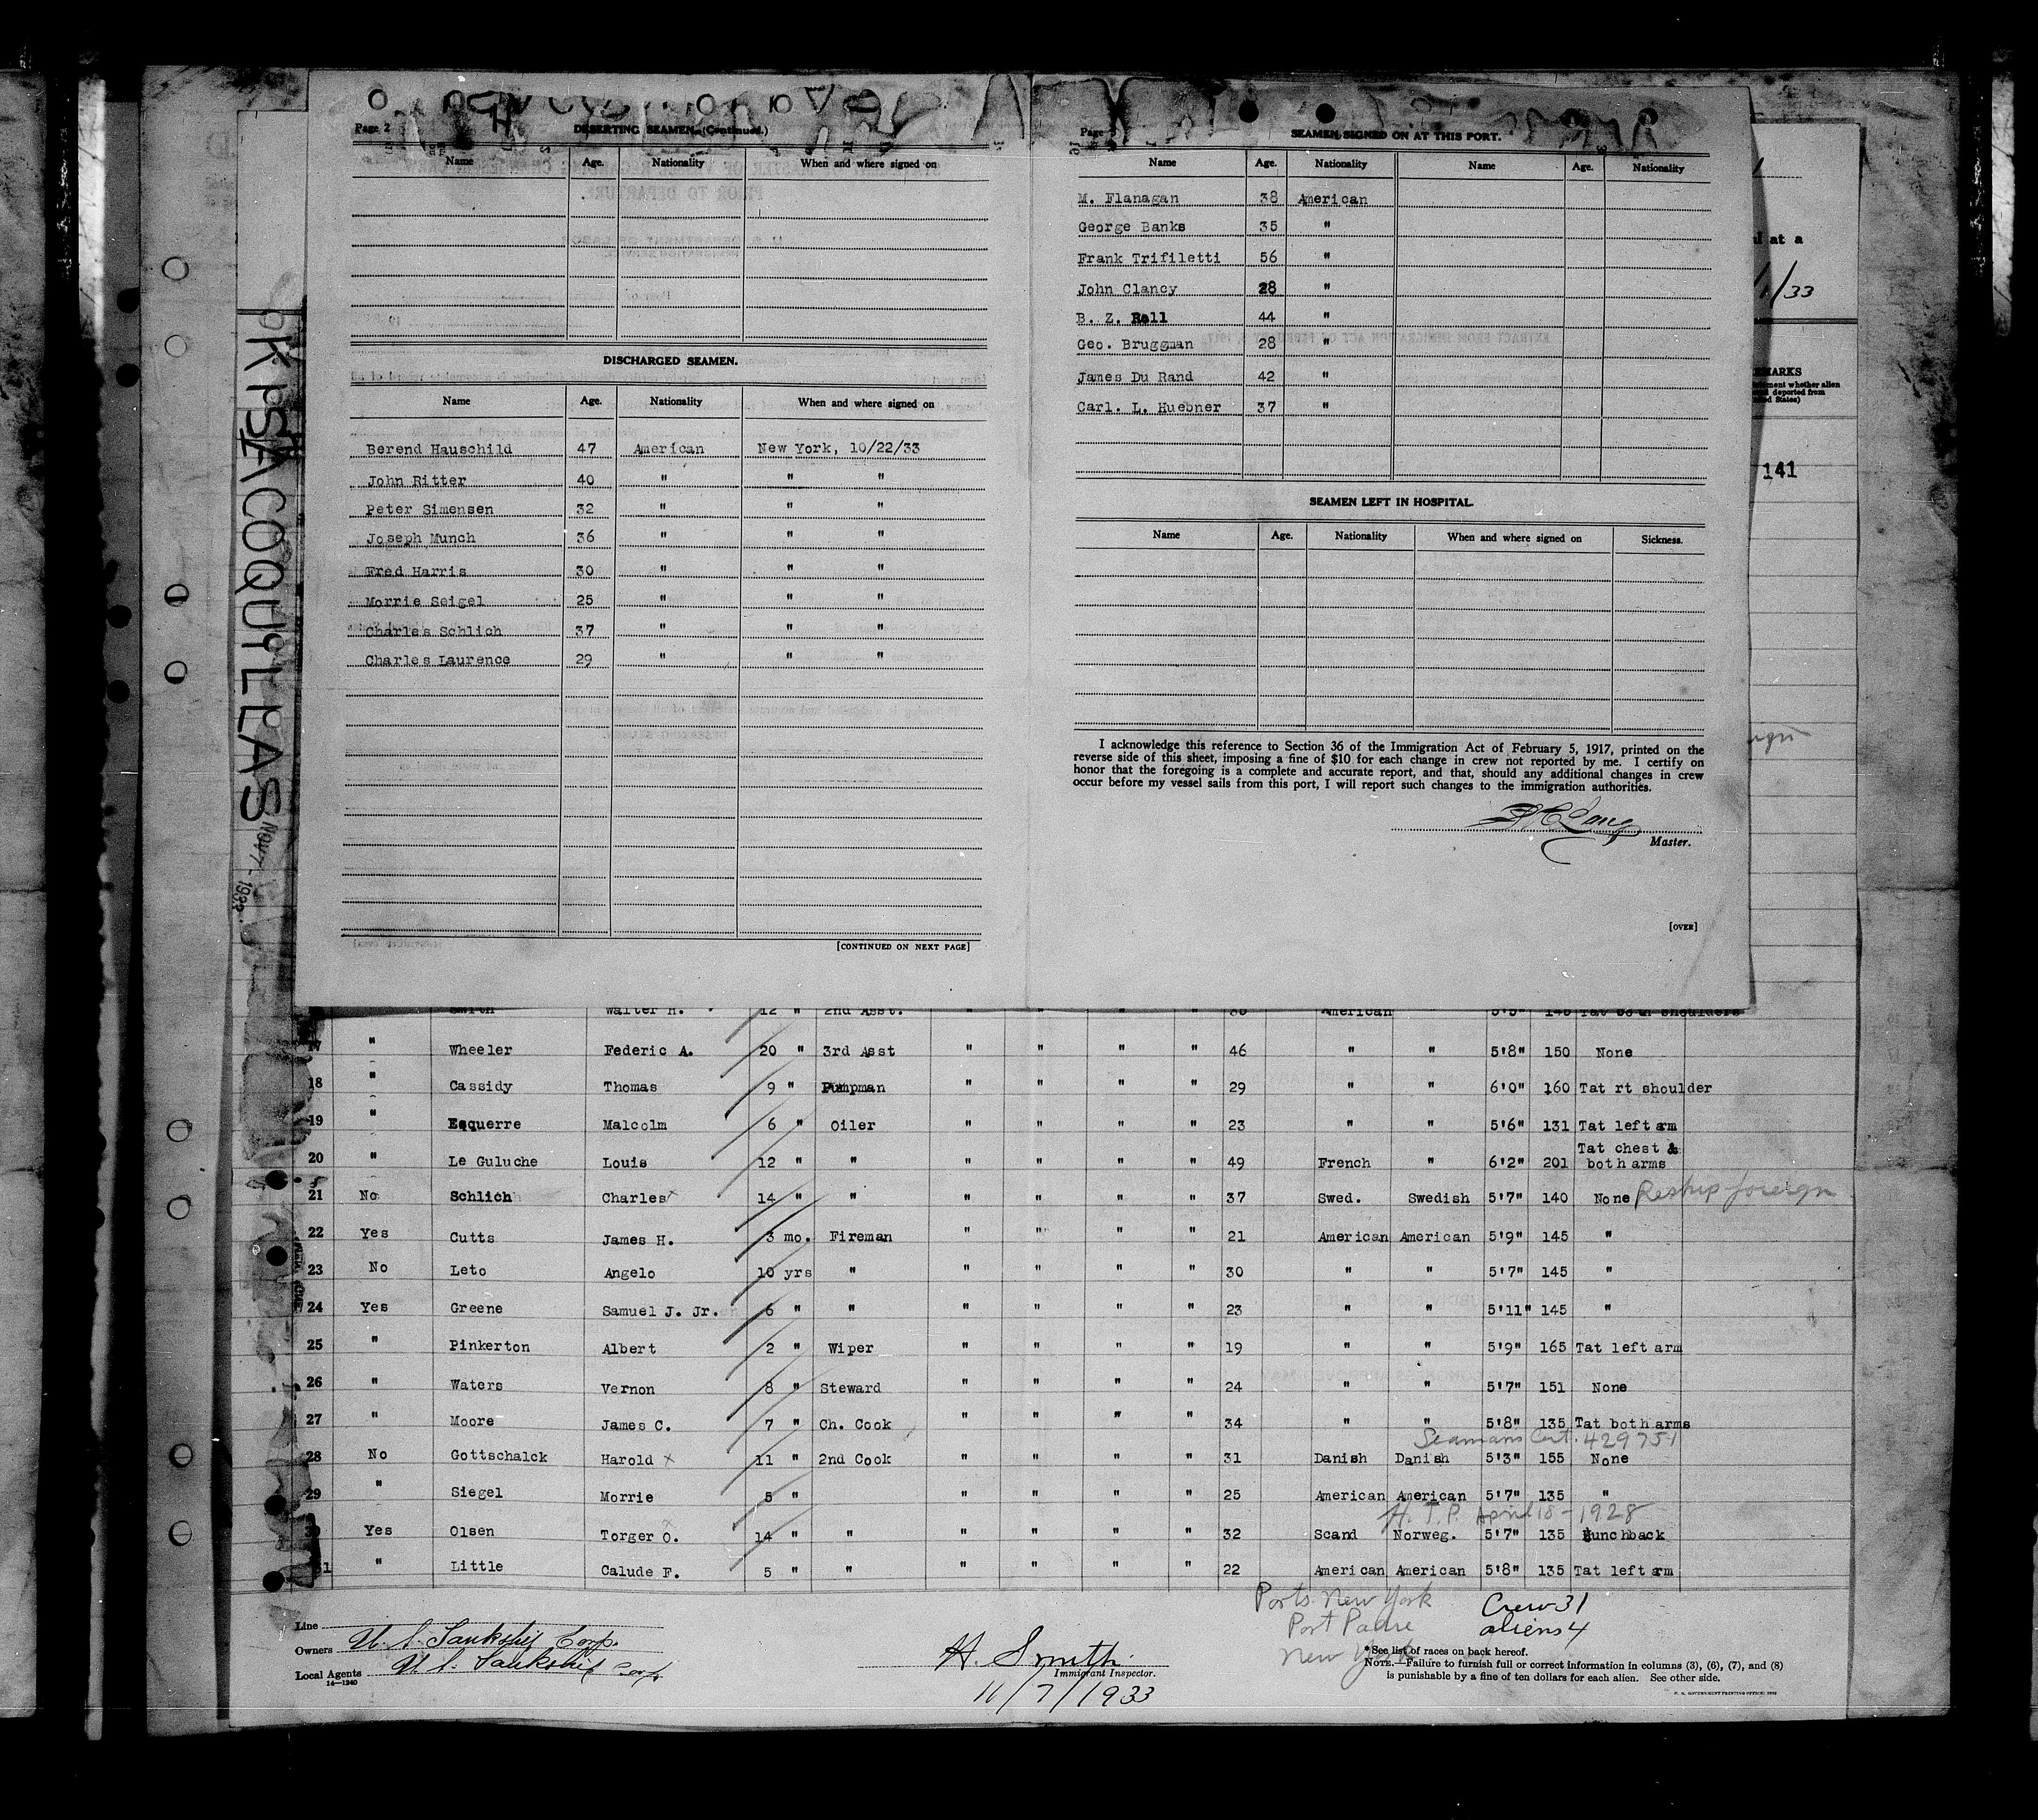 Page 2
DESERTING SEAMEN. (Continued.)
Name Age. Nationality When and where signed on
DISCHARGED SEAMEN.
Name Age. Nationality When and where signed on
Berend Hauschild 47 American New York, 10/22/33
John Ritter 40 " " "
Peter Simensen 32 " " "
Joseph Munch 36 " " "
Fred Harris 30 " " "
Morrie Seigel 25 " " "
Charles Schlich 37 " " "
Charles Laurence 29 " " "
[CONTINUED ON NEXT PAGE]
Page
SEAMEN SIGNED ON AT THIS PORT.
Name Age. Nationality Name Age. Nationality
M. Flanagan 38 American
George Banks 35 "
Frank Trifiletti 56 "
John Clancy 28 "
B. Z. Rell 44 "
Geo. Bruggman 28 "
James Du Rand 42 "
Carl. L. Huebner 37 "
SEAMEN LEFT IN HOSPITAL.
Name Age. Nationality When and where signed on Sickness.
I acknowledge this reference to Section 36 of the Immigration Act of February 5, 1917, printed on the
reverse side of this sheet, imposing a fine of $10 for each change in crew not reported by me. I certify on
honor that the foregoing is a complete and accurate report, and that, should any additional changes in crew
occur before my vessel sails from this port, I will report such changes to the immigration authorities.
Master.
[OVER]
at a
/33
141
NOV 7 - 1933
Smith Walter H. 12 " 2nd Asst. " " " " American 5'5" Tat both shoulders
17 " Wheeler Federic A. 20 " 3rd Asst " " " " 46 " " 5'8" 150 None
18 " Cassidy Thomas 9 " Pumpman " " " " 29 " " 6'0" 160 Tat rt shoulder
19 " Esquerre Malcolm 6 " Oiler " " " " 23 " " 5'6" 131 Tat left arm
20 " Le Guluche Louis 12 " " " " " " 49 French " 6'2" 201 Tat chest &
both arms
21 No Schlich Charles 14 " " " " " " 37 Swed. Swedish 5'7" 140 None Reship foreign
22 Yes Cutts James H. 3 mo. Fireman " " " " 21 American American 5'9" 145 "
23 No Leto Angelo 10 yrs " " " " " 30 " " 5'7" 145 "
24 Yes Greene Samuel J. Jr. 6 " " " " " " 23 " " 5'11" 145 "
25 " Pinkerton Albert 2 " Wiper " " " " 19 " " 5'9" 165 Tat left arm
26 " Waters Vernon 8 " Steward " " " " 24 " " 5'7" 151 None
27 " Moore James C. 7 " Ch. Cook " " " " 34 " " 5'8" 135 Tat both arms
Seamans Cert. 429751
28 No Gottschalck Harold x 11 " 2nd Cook " " " " 31 Danish Danish 5'3" 155 None
29 " Siegel Morrie 5 " " " " " 25 American American 5'7" 135 "
H. T. P. April 18 - 1928
30 Yes Olsen Torger O. 14 " " " " " " 32 Scand Norweg. 5'7" 135 Hunchback
31 " Little Calude F. 5 " " " " " " 22 American American 5'8" 135 Tat left arm
Ports New York
Port Padre
New York
Crew 31
aliens 4
Line
Owners U. S. Tankship Corp.
Local Agents U. S. Tankship Corp
14—1240
H. Smith
Immigrant Inspector.
11/7/1933
*See list of races on back hereof.
NOTE.—Failure to furnish full or correct information in columns (3), (6), (7), and (8)
is punishable by a fine of ten dollars for each alien. See other side.